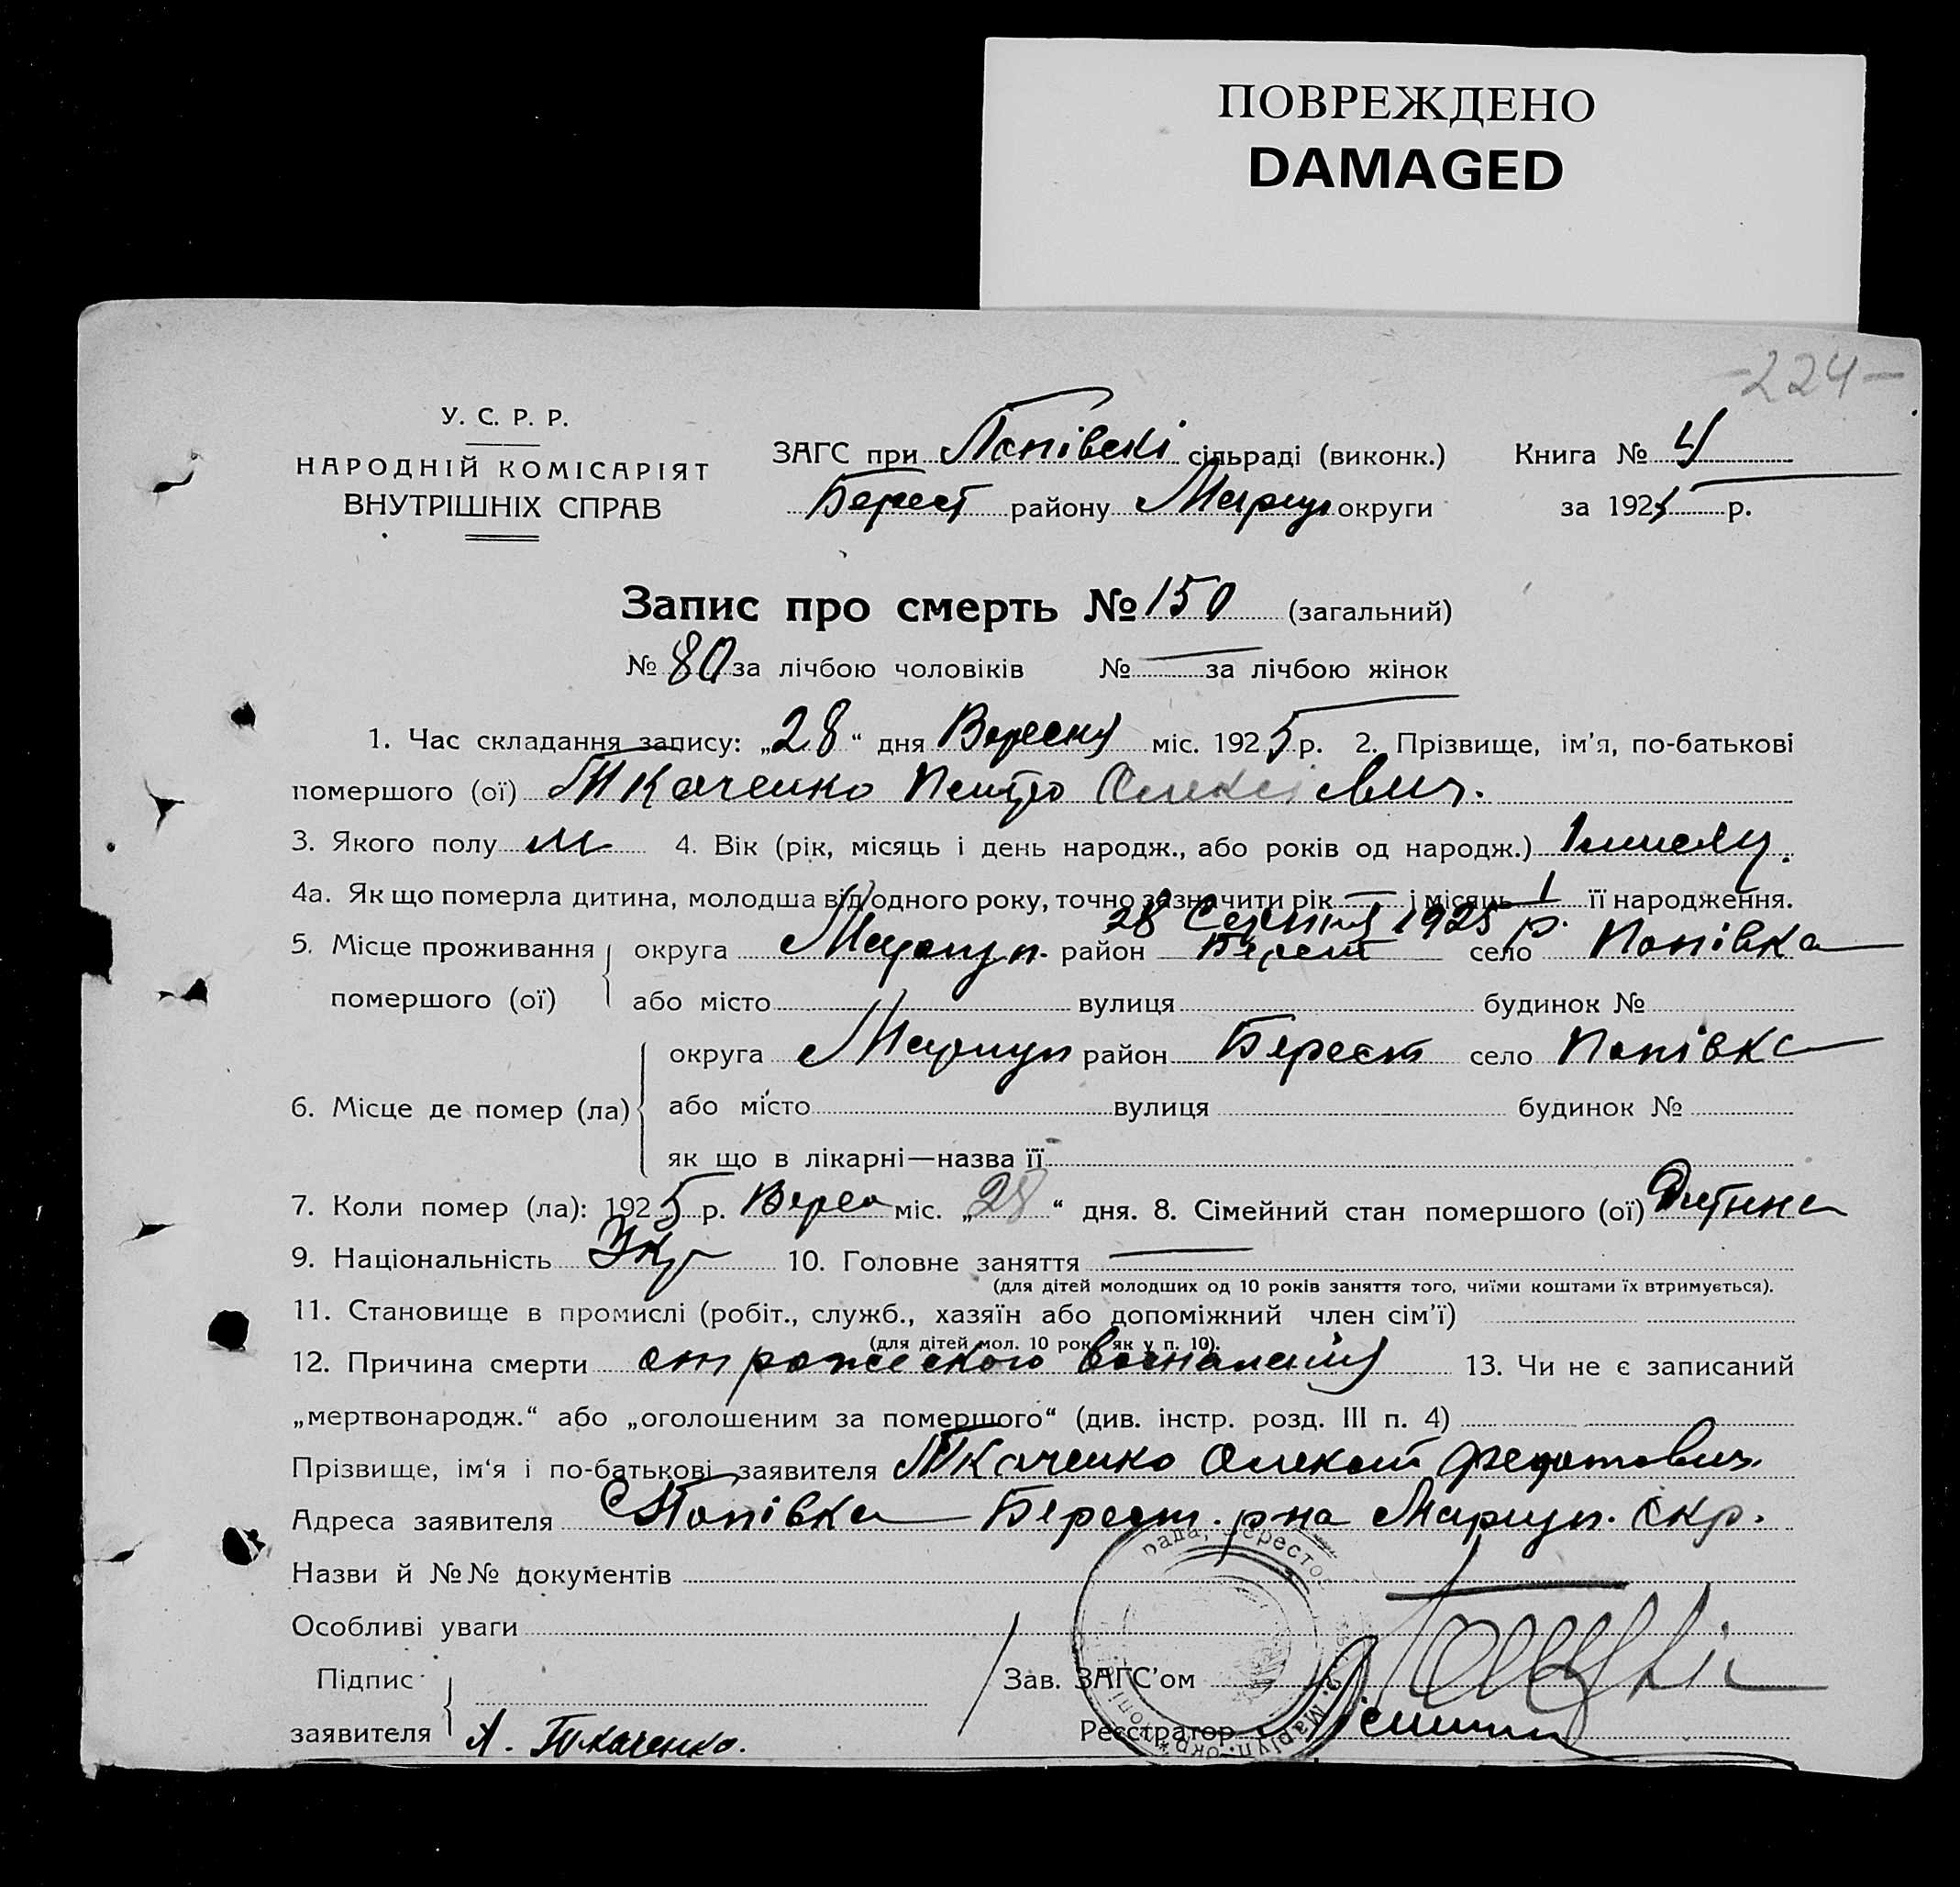 ПОВРЕЖДЕНО
DAMAGED
-224-
У. С. Р. Р.
НАРОДНІЙ КОМІСАРІЯТ
ВНУТРІШНІХ СПРАВ
ЗАГС при Попівскі сільраді (виконк.)
Берест району Маріуп округи
Книга № 4
за 1925 р.
Запис про смерть № 150 (загальний)
№ 80 за лічбою чоловіків № — за лічбою жінок
1. Час складання запису: „28“ дня Вересня міс. 1925 р. 2. Прізвище, ім'я, по-батькові
помершого (ої) Ткаченко Петро Олексієвич.
3. Якого полу м 4. Вік (рік, місяць і день народж., або років од народж.) 1 місяц.
4а. Як що померла дитина, молодша від одного року, точно зазначити рік — і місяць 1 її народження.
28 Серпня 1925 р.
5. Місце проживання округа Мариуп. район Берест село Попівка
помершого (ої) або місто вулиця будинок №
округа Мариуп район Берест село Попівка
6. Місце де помер (ла) або місто вулиця будинок №
як що в лікарні—назва її
7. Коли помер (ла): 1925 р. Верес міс. „28“ дня. 8. Сімейний стан помершого (ої) Дитина
9. Національність Укр 10. Головне заняття —
(для дітей молодших од 10 років заняття того, чиїми коштами їх втримується).
11. Становище в промислі (робіт., служб., хазяїн або допоміжний член сім'ї)
(для дітей мол. 10 рок. як у п. 10).
12. Причина смерти воспаления 13. Чи не є записаний
„мертвонародж.“ або „оголошеним за помершого“ (див. інстр. розд. III п. 4)
Прізвище, ім'я і по-батькові заявителя Ткаченко Олексій Федотович
Адреса заявителя С Попівка Берест. р-на Мариуп. Окр.
Назви й №№ документів
Особливі уваги
Підпис
заявителя А. Ткаченко.
Зав. ЗАГС'ом
Реєстратор
рада, Берестов Маріуп. окр.